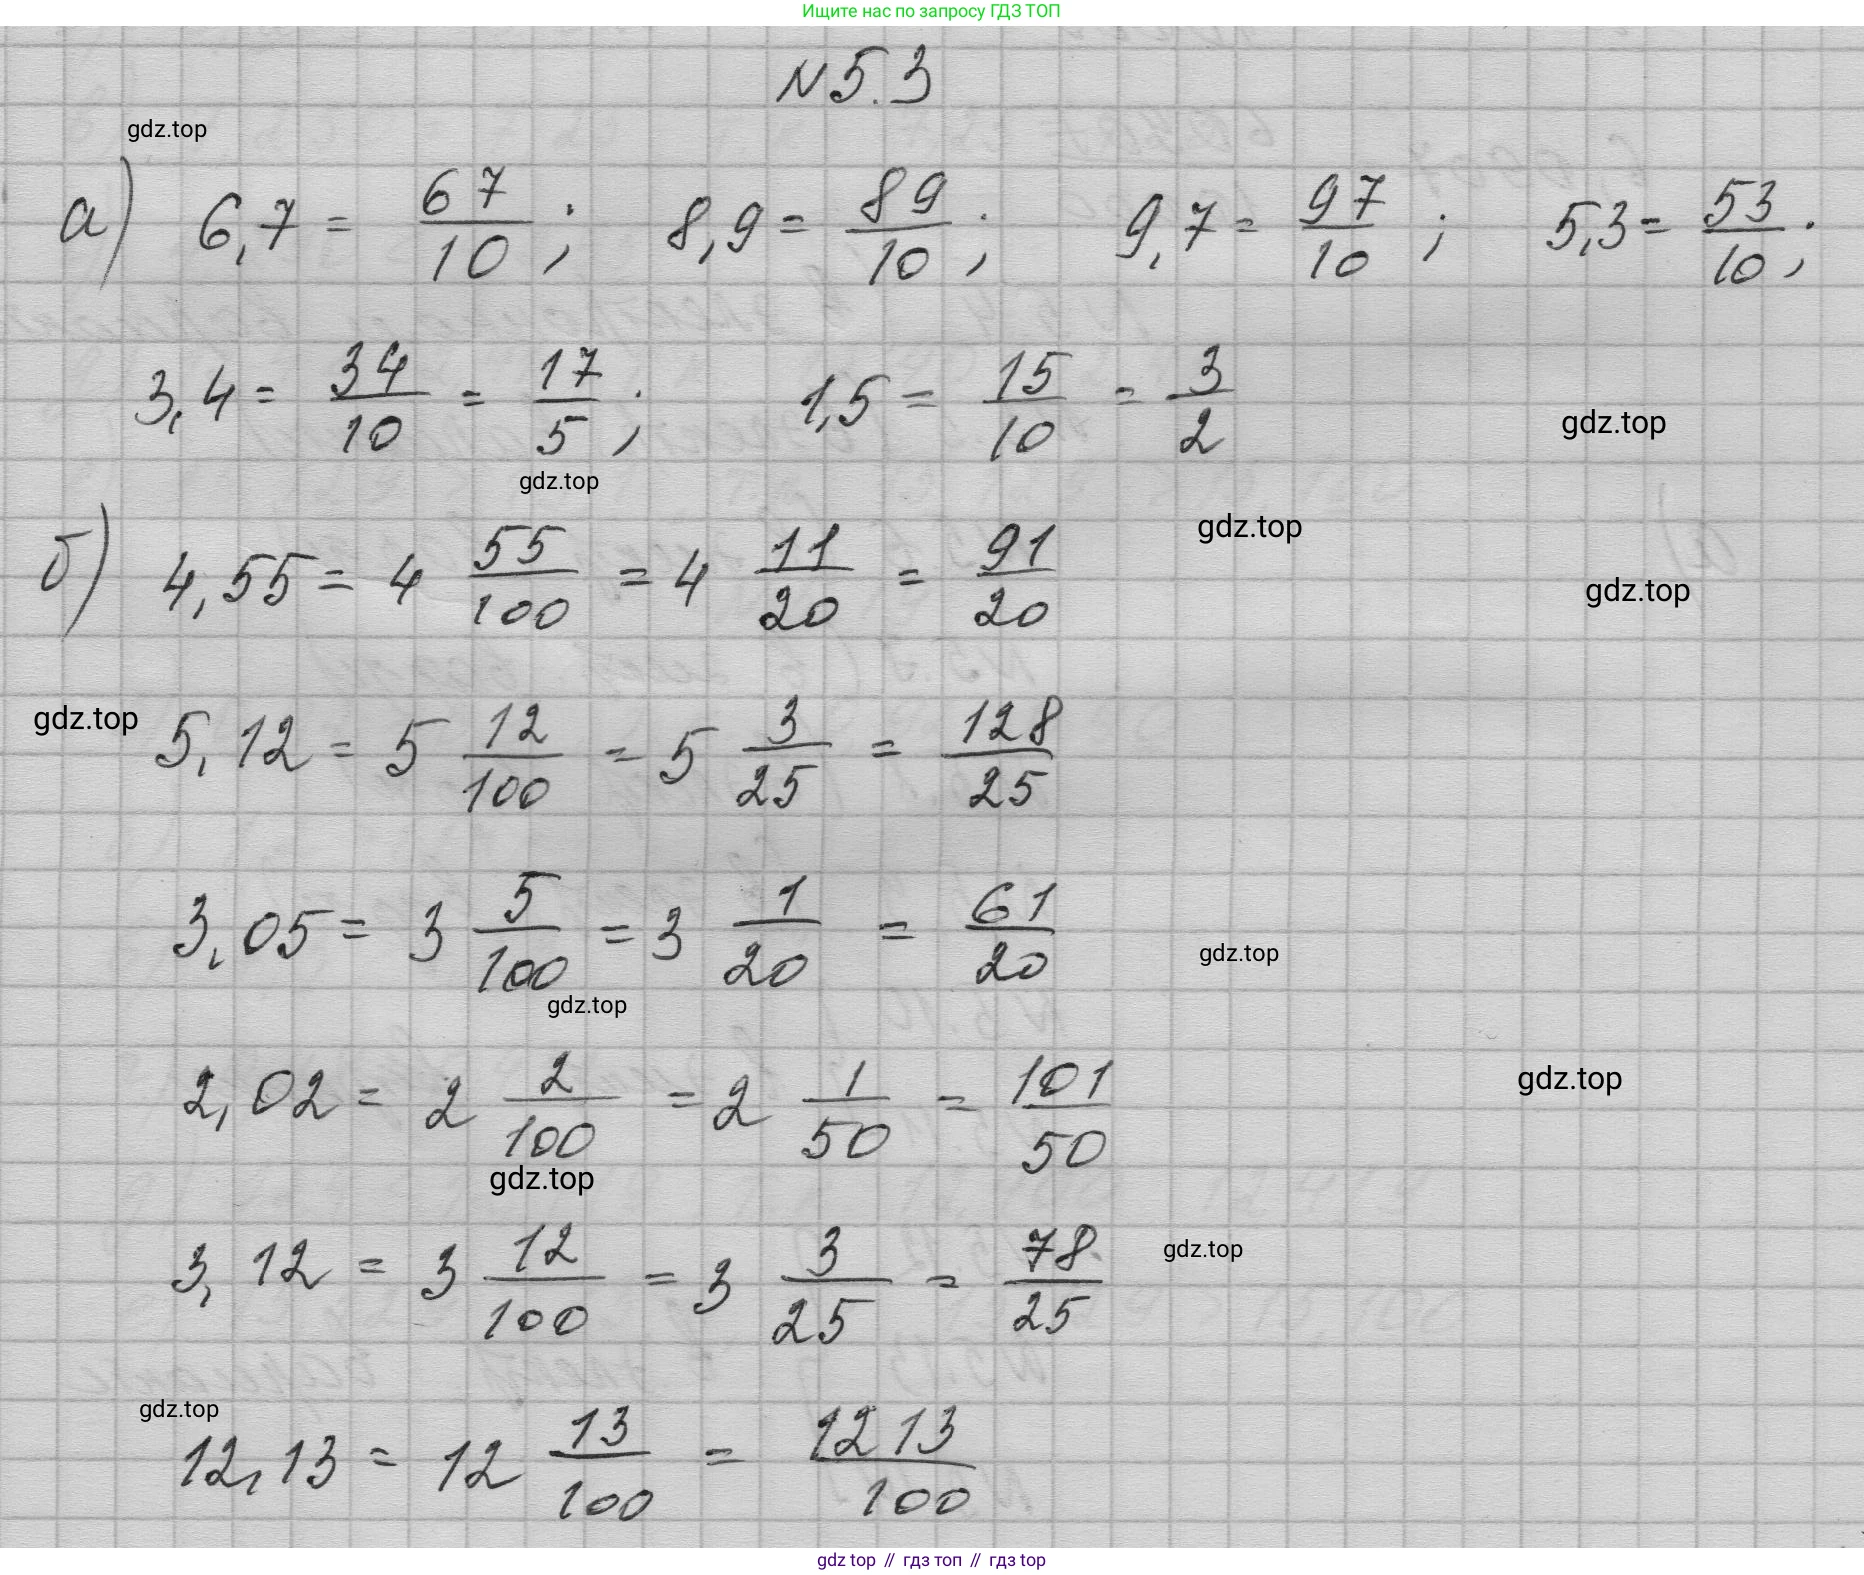 Ищите нас по запросу ГДЗ ТОП
N5.3
gdz.top
а) 6,7 = 67/10; 8,9 = 89/10; 9,7 = 97/10; 5,3 = 53/10;
3,4 = 34/10 = 17/5; 1,5 = 15/10 = 3/2
gdz.top
gdz.top
gdz.top
б) 4,55 = 4 55/100 = 4 11/20 = 91/20
gdz.top
gdz.top
5,12 = 5 12/100 = 5 3/25 = 128/25
3,05 = 3 5/100 = 3 1/20 = 61/20
gdz.top
gdz.top
2,02 = 2 2/100 = 2 1/50 = 101/50
gdz.top
gdz.top
3,12 = 3 12/100 = 3 3/25 = 78/25
gdz.top
gdz.top
12,13 = 12 13/100 = 1213/100
gdz top // гдз топ // gdz top